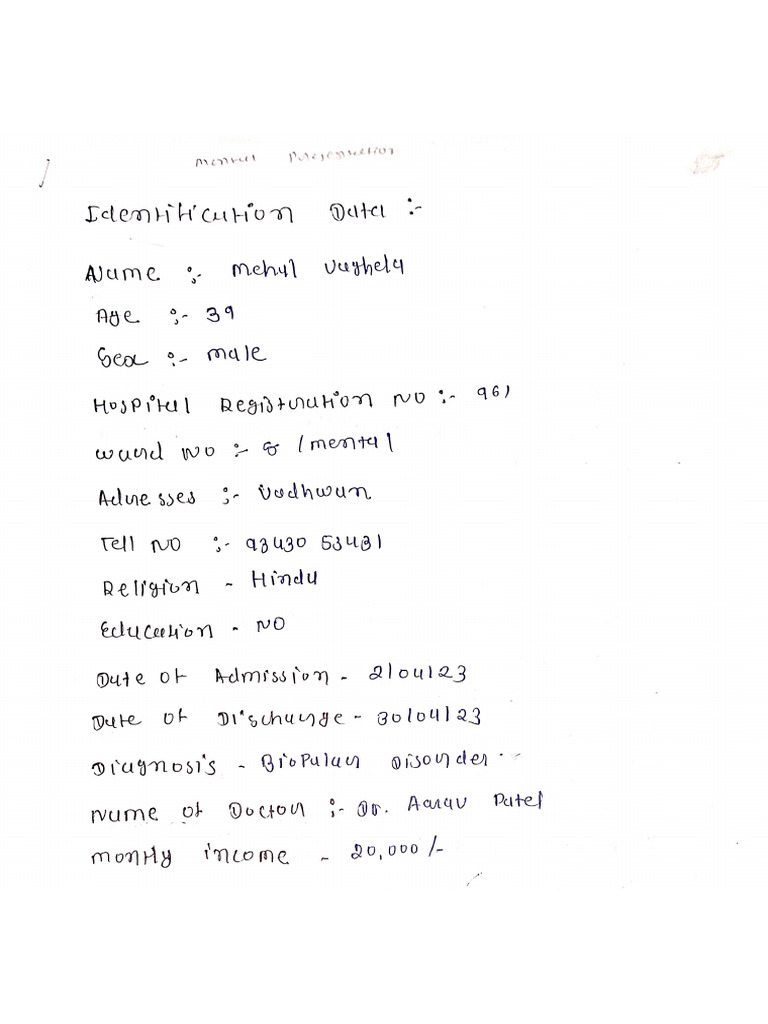 Mental Presentation
Identification Data :-
Name :- Mehul Vaghela
Age :- 39
Sex :- male
Hospital Registration NO :- 961
Ward NO :- 8 / mental
Adresses :- Vadhwan
Tell NO :- 93430 53431
Religion - Hindu
Education - NO
Date of Admission - 2/04/23
Date of Discharge - 30/04/23
Diagnosis - BioPolar Disorder
Name of Doctor :- Dr. Aarav Patel
Montly income - 20,000/-